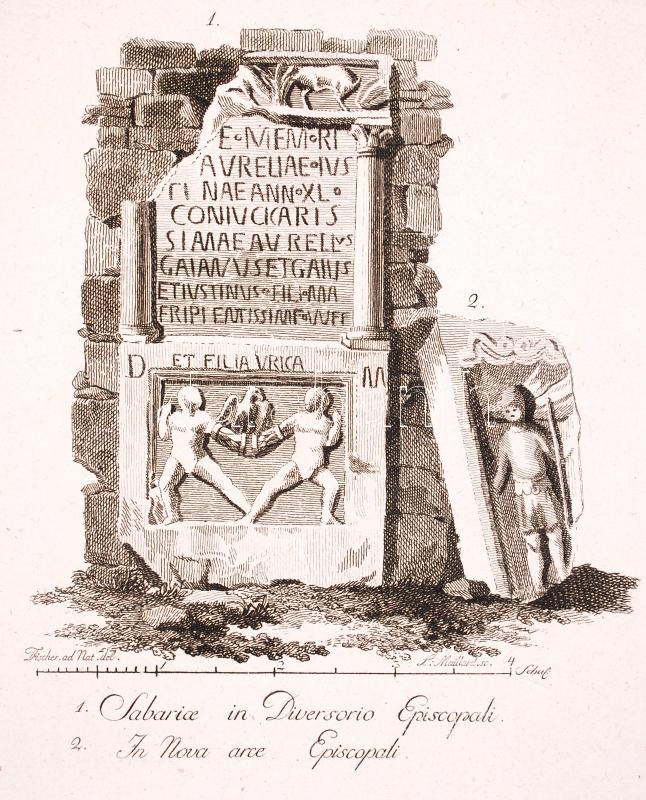 1.
E·MEM·RI
AVRELIAE·IVS
TI NAE ANN·XL·
CONIVGICARIS
SIMAE AVRELIVS
GAIANVS ET GAIUS
ET IVSTINUS·FILI·MA
ERIPIENTISSIME·VV·FF
D ET FILIA VRICA M
2.
Fischer ad Nat. del.
J. Maillard sc.
1 2 3 4 Schuh
1. Sabariæ in Diversorio Episcopali.
2. In Nova arce Episcopali.